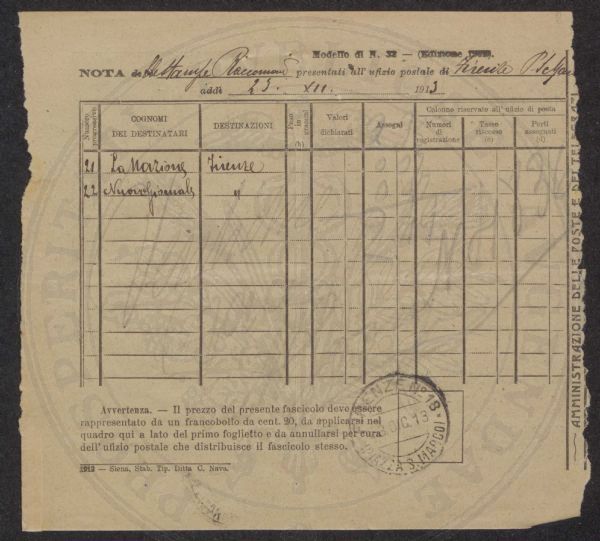 Modello di N. 32 — (Edizione 1912).
NOTA delle Stampe Raccomand presentati all'ufizio postale di Firenze
addì 23. XII. 1913
Numero progressivo
COGNOMI DEI DESTINATARI
DESTINAZIONI
Peso in grammi
Valori dichiarati
Assegni
Colonne riservate all'ufizio di posta
Numeri di registrazione
Tasse riscosse
Porti assegnati
21 La Nazione Firenze
22 Nuovo Giornale "
Avvertenza. — Il prezzo del presente fascicolo deve essere
rappresentato da un francobollo da cent. 20, da applicarsi nel
quadro qui a lato del primo foglietto e da annullarsi per cura
dell'ufizio postale che distribuisce il fascicolo stesso.
1912 — Siena, Stab. Tip. Ditta C. Nava.
FIRENZE N. 18
(PIAZZA S. MARCO)
AMMINISTRAZIONE DELLE POSTE E DEI TELEGRAFI